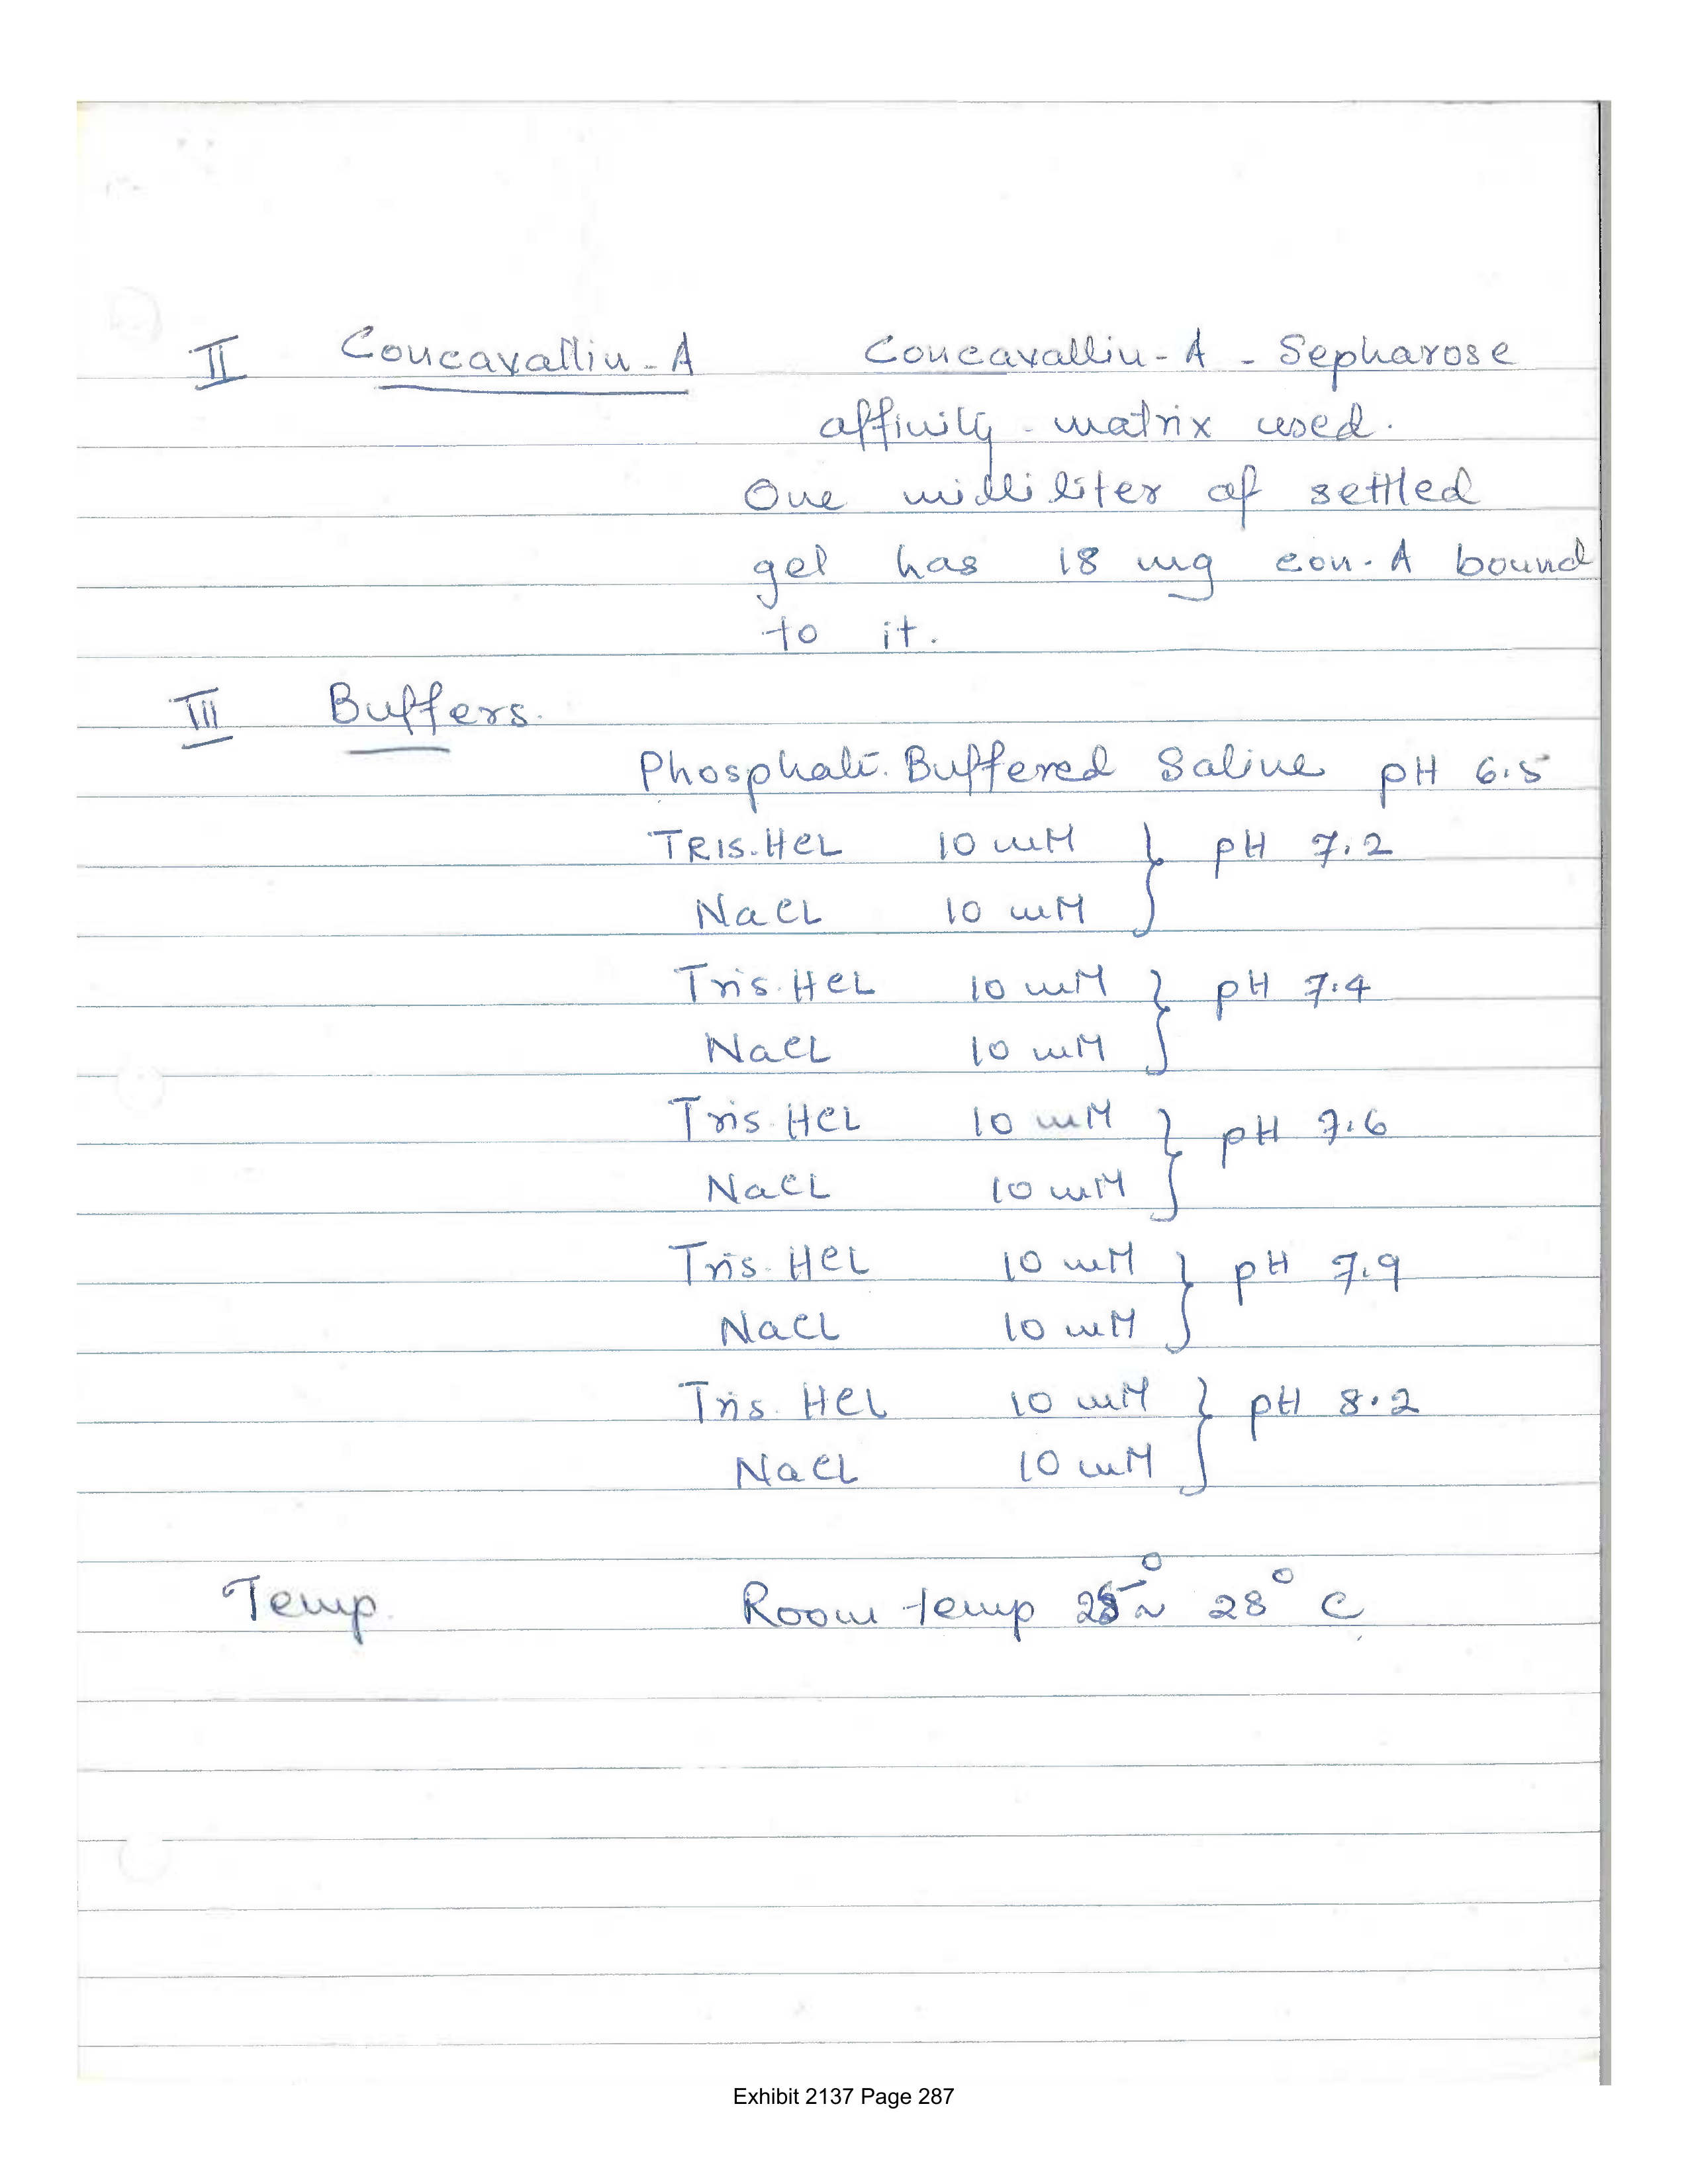 II Concavallin-A Concavallin-A-Sepharose
affinity-matrix used.
One milliliter of settled
gel has 18 mg con-A bound
to it.
III Buffers.
Phosphate Buffered Saline pH 6.5
TRIS-HCL 10 mM } pH 7.2
NaCL 10 mM
Tris.HCL 10 mM } pH 7.4
NaCL 10 mM
Tris-HCL 10 mM } pH 7.6
NaCL 10 mM
Tris-HCL 10 mM } pH 7.9
NaCL 10 mM
Tris.HCL 10 mM } pH 8.2
NaCL 10 mM
Temp. Room temp 25° ~ 28° C
Exhibit 2137 Page 287